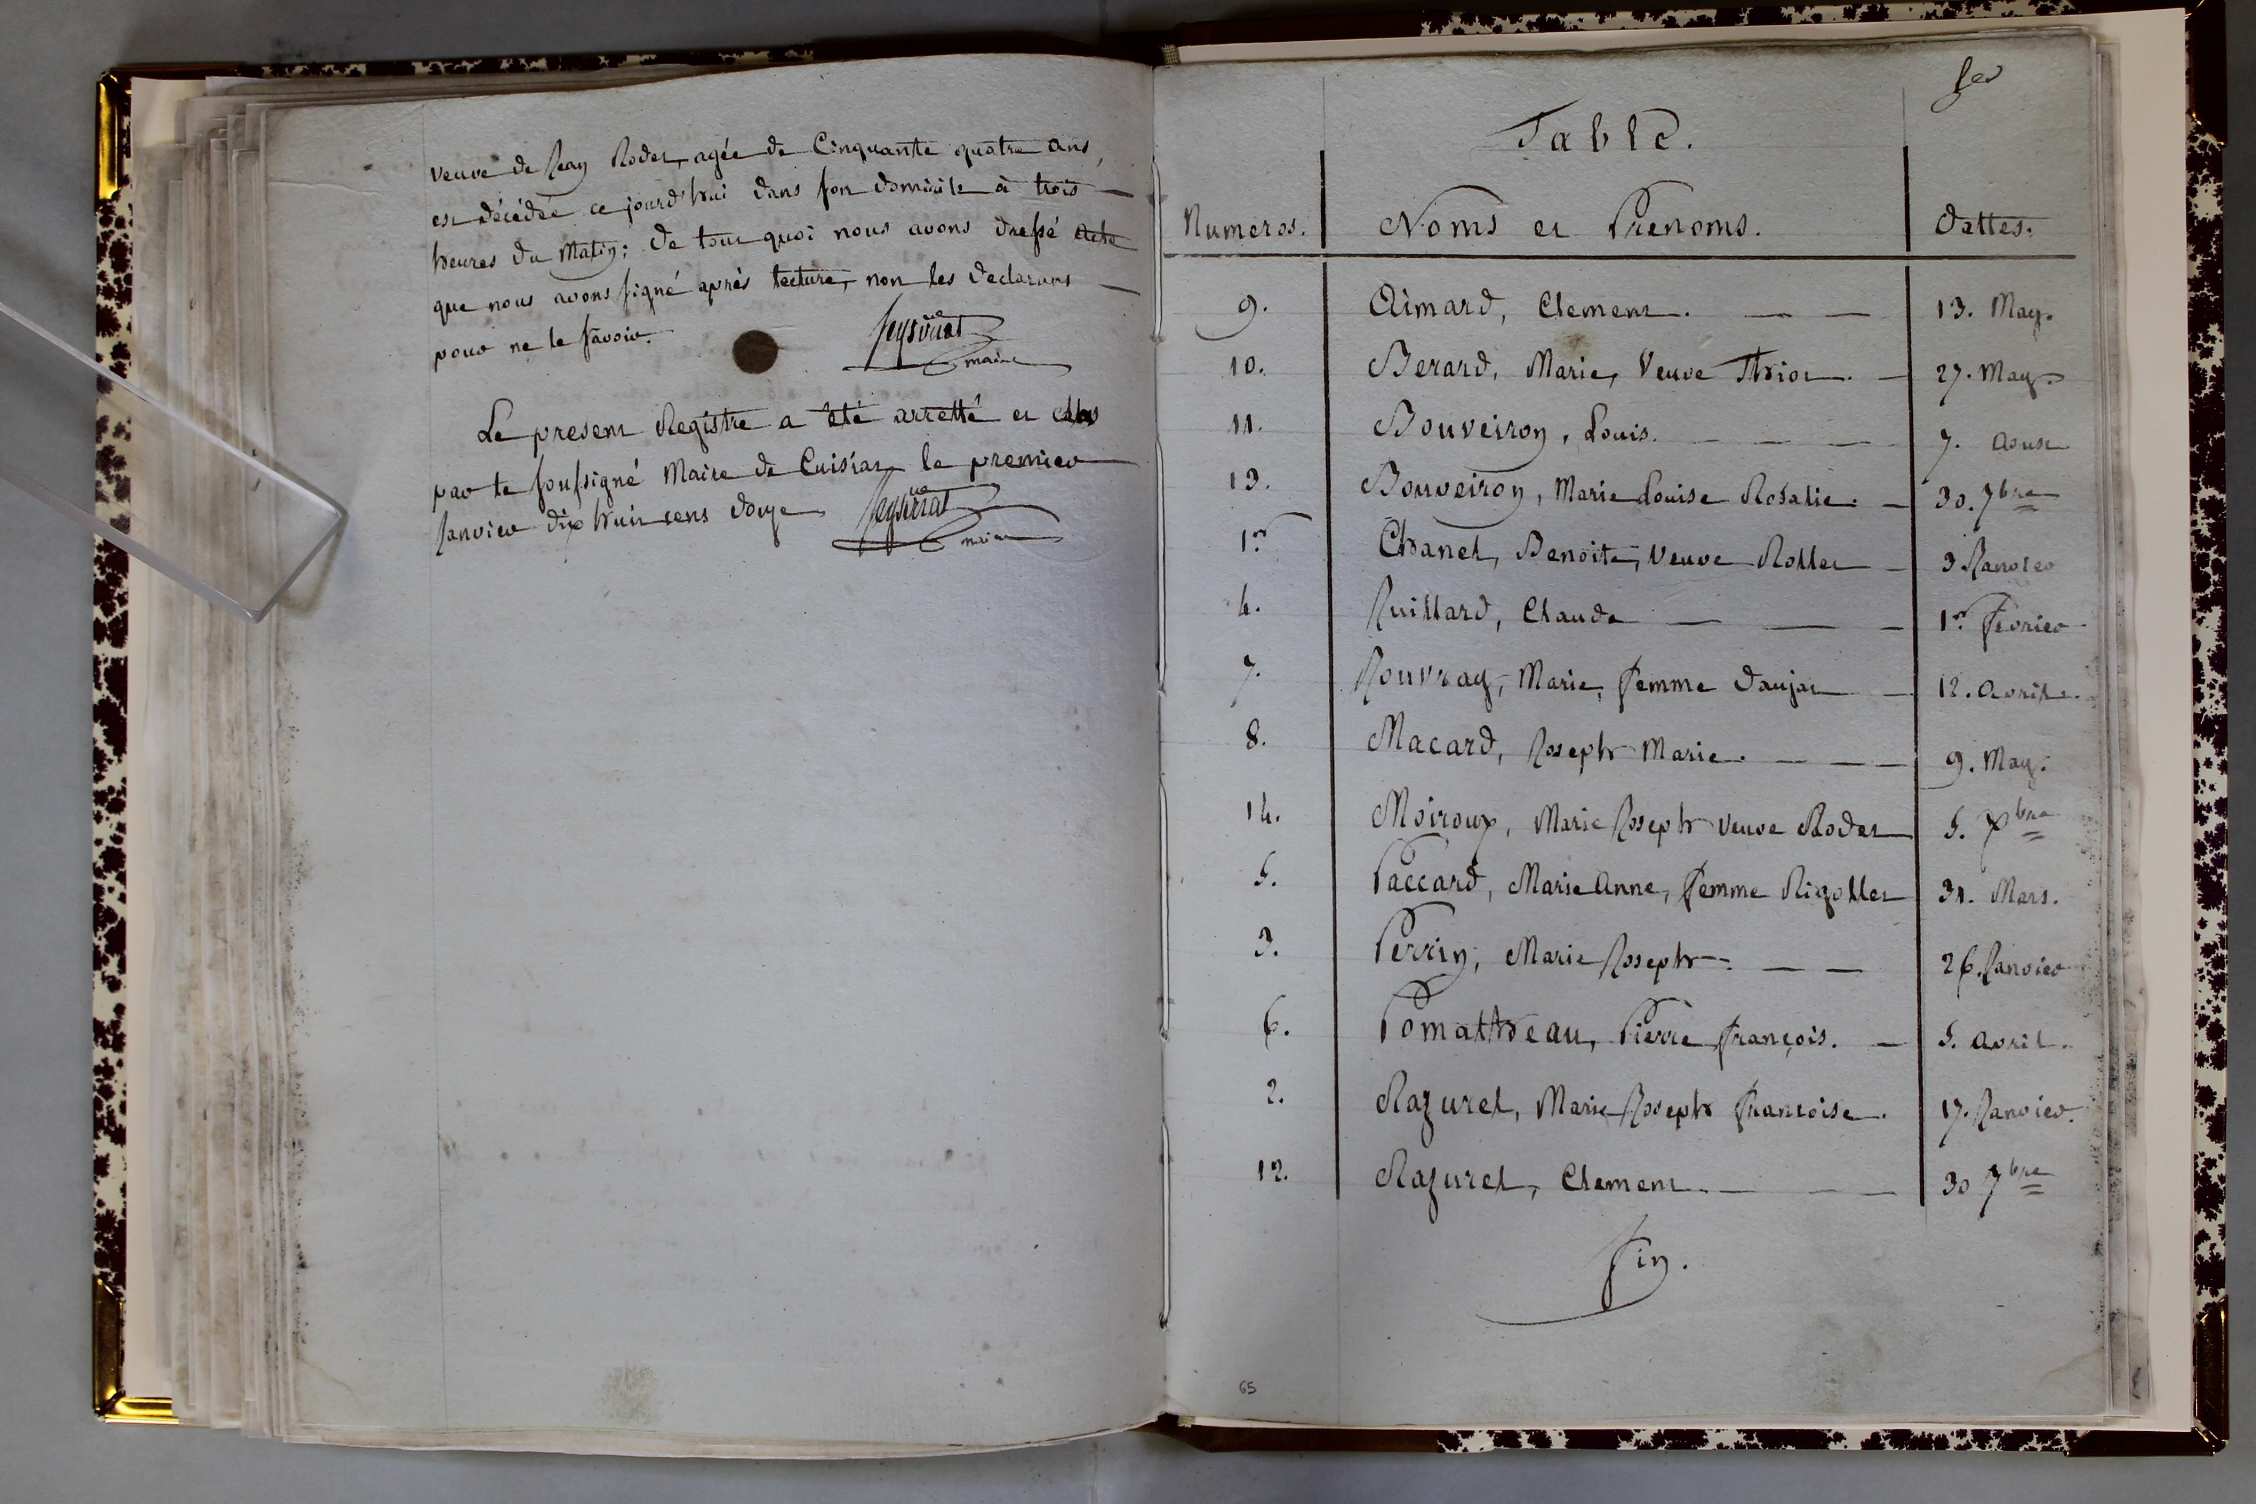 veuve de Jean Rodet, agée de Cinquante quatre ans,
est décédée ce jourd'hui dans son domicile à trois
heures du Matin; de tout quoi nous avons dressé acte
que nous avons signé après lecture, non les declarans
pour ne le savoir.
maire
Le present Registre a été arretté et clos
par le soussigné Maire de Cuisiat le premier
Janvier dix huit cens douze
maire
Table.
Numeros. Noms et Prenoms. dattes.
9. Aimard, Clement. 13. May.
10. Berard, Marie, Veuve Thiot. 27. May.
11. Bouveiron, Louis. 7. Aoust
13. Bouveiron, Marie Louise Rosalie. 30. 7bre
1er Chanel, Benoite, Veuve Rollet 3 Janvier
4. Juillard, Claude 1er Fevrier
7. Jouvray, Marie, femme daujat 12. Avril.
8. Macard, Joseph Marie. 9. May.
14. Moiroux, Marie Joseph veuve Rodet 5. Xbre
5. Paccard, Marie Anne, femme Rigollet 31. Mars.
3. Perrin, Marie Joseph. 26. Janvier
6. Pomatheau, Pierre françois. 5. Avril.
2. Razurel, Marie Joseph francoise. 17. Janvier.
12. Razurel, Clement. 30 7bre
fin.
65